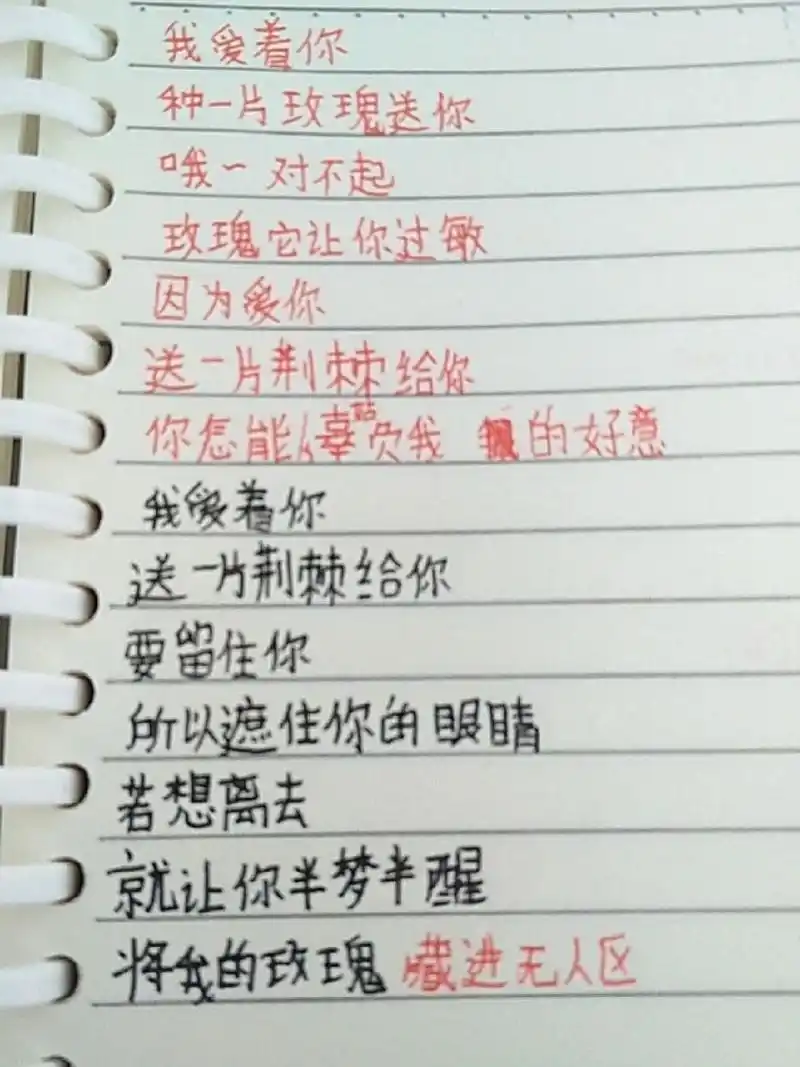 我爱着你
种一片玫瑰送你
哦~ 对不起
玫瑰它让你过敏
因为爱你
送一片荆棘给你
你怎能辜负我 的好意
我爱着你
送一片荆棘给你
要留住你
所以遮住你的眼睛
若想离去
就让你半梦半醒
将我的玫瑰 藏进无人区